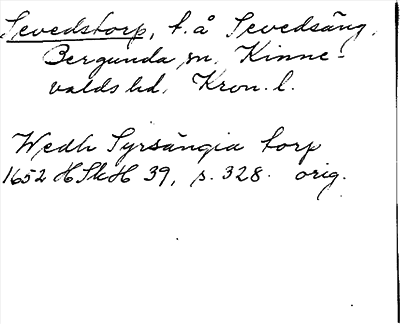 Sevedstorp, t. å Sevedsäng,
Bergunda sn, Kinne-
valds hd, Kron. l.
Wedh Syrsängia torp
1652 HSkH 39, s. 328. orig.